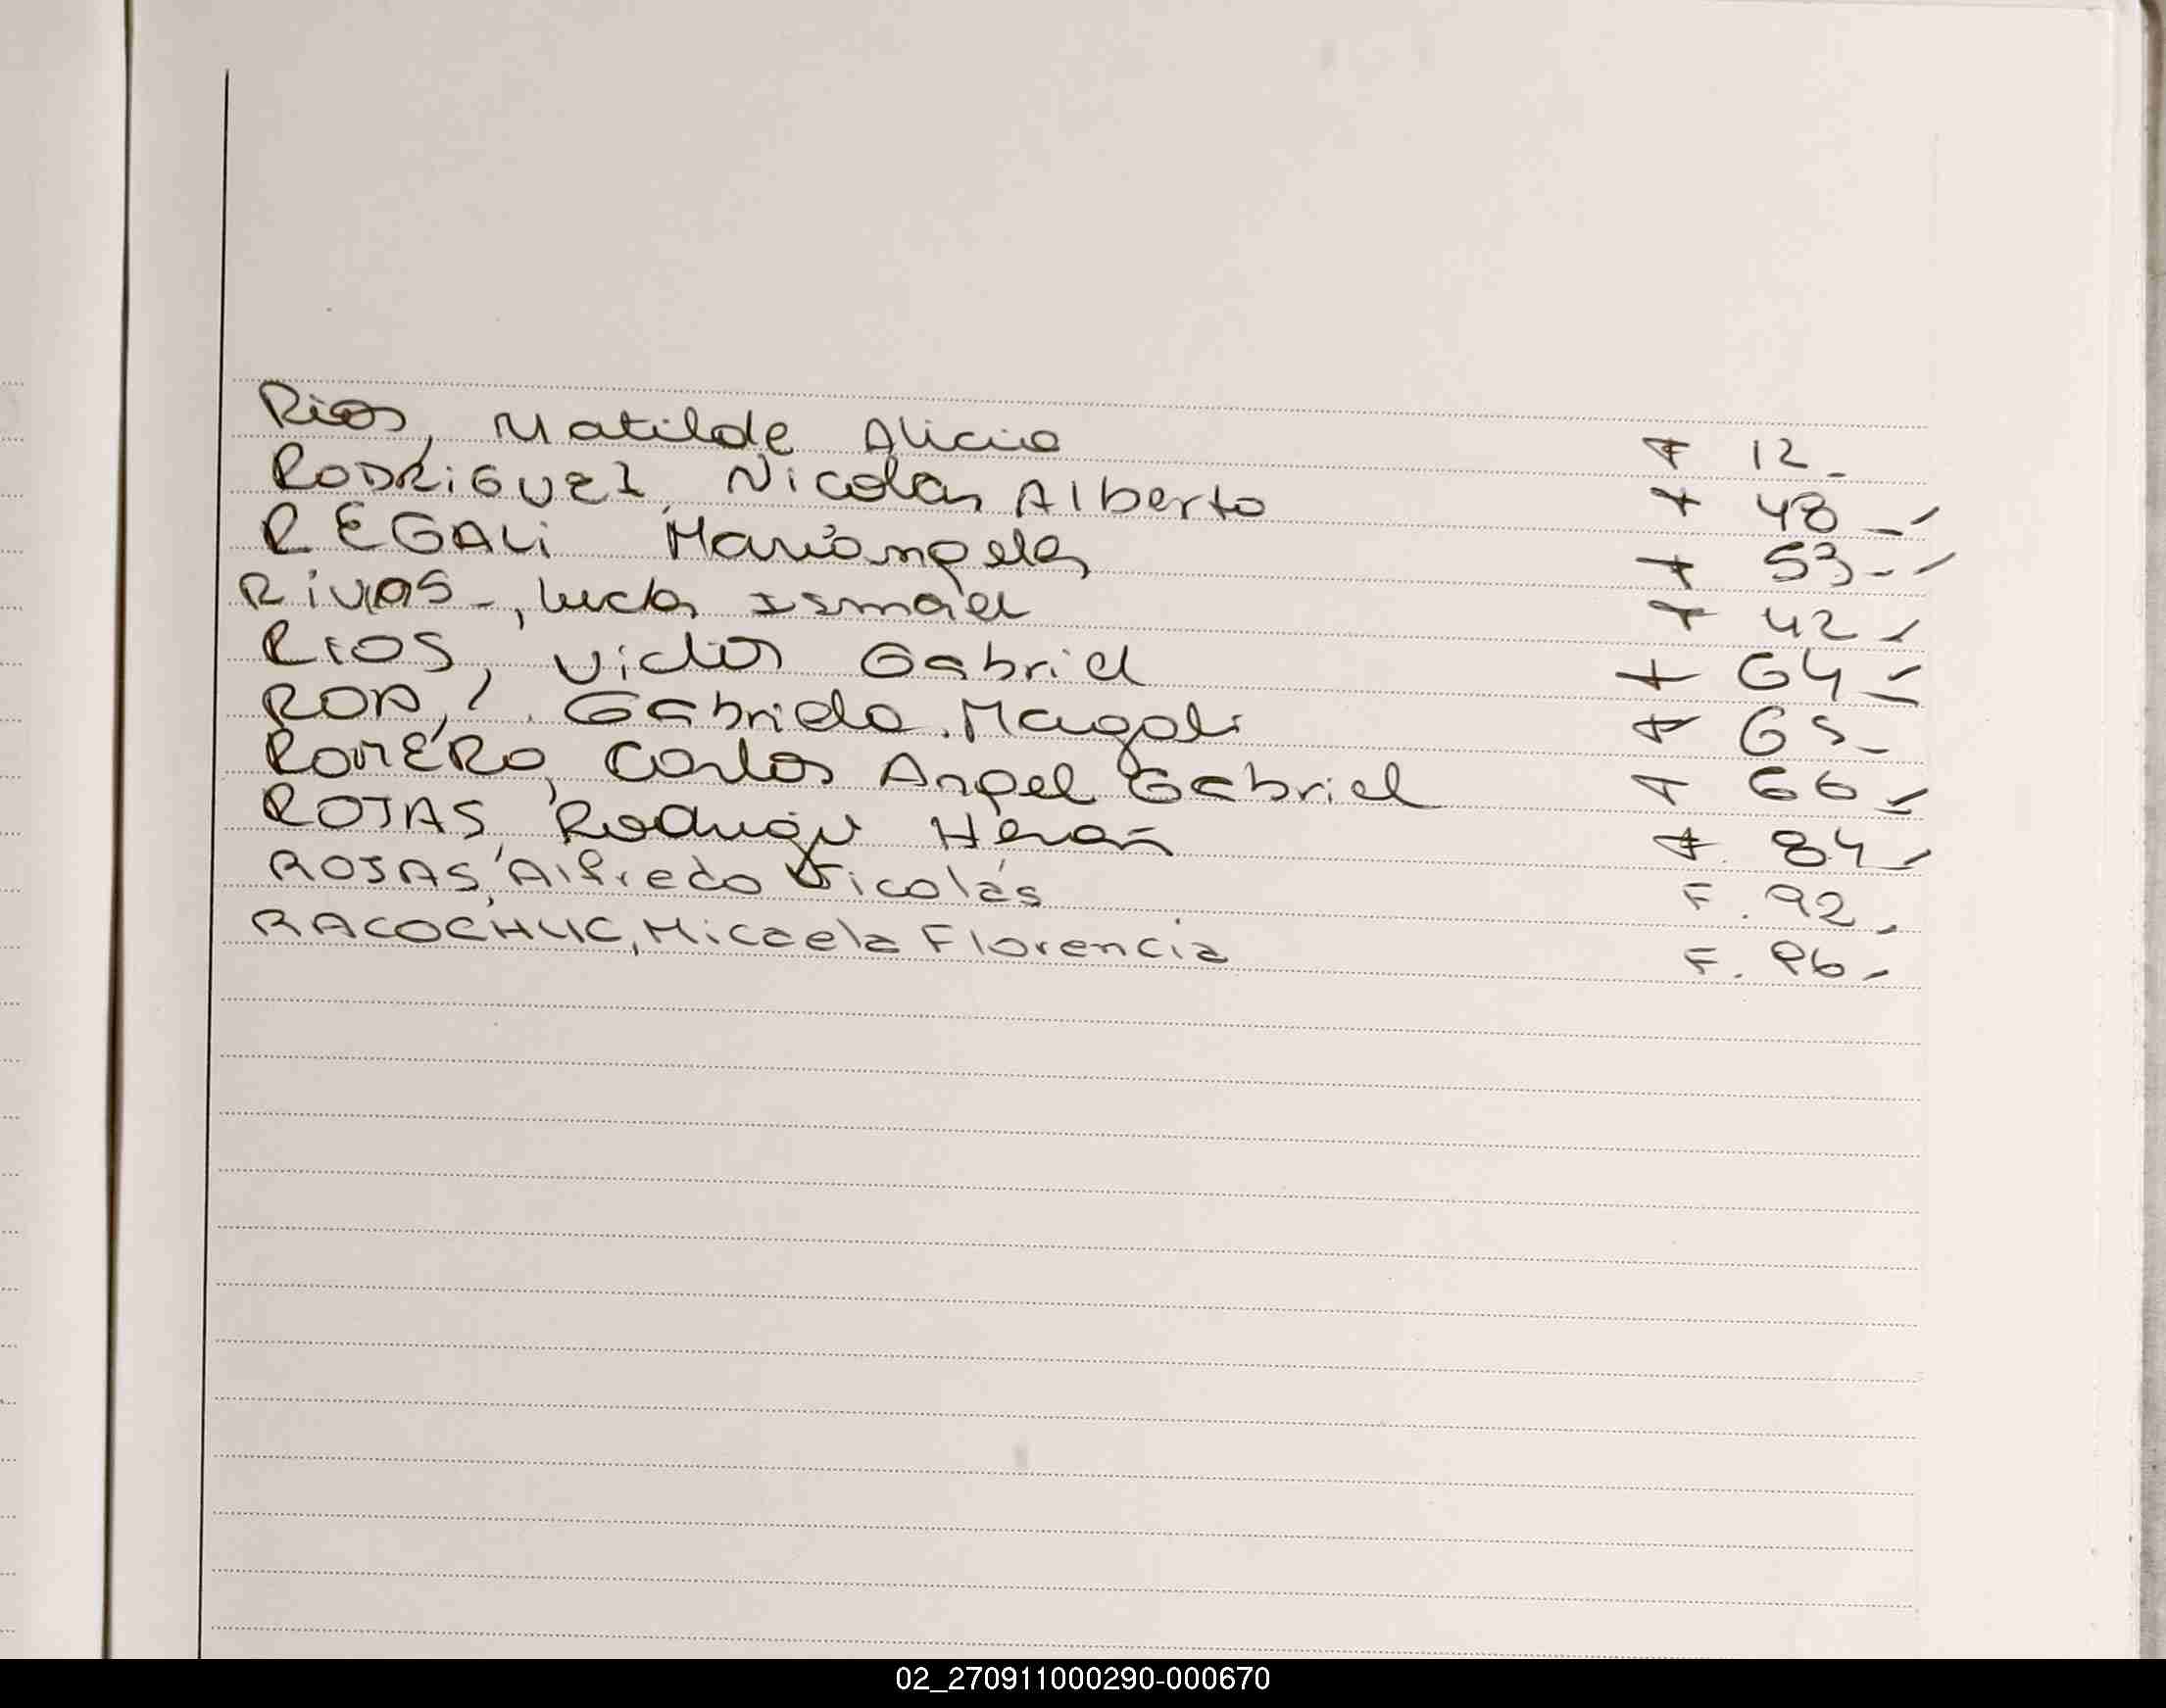 Rios, Matilde Alicia F 12-
RODRIGUEZ, Nicolas Alberto F 48-
REGALi Mariangela F 53-
Rivas-, Lucas Ismael F 42-
RIOS, Victor Gabriel F 64-
RODA, Gabriela Magali F 65-
ROMERO, Carlos Angel Gabriel F 66-
ROJAS, Rodrigo Hernán F 84-
ROJAS, Alfredo Nicolás F. 92-
RACOCHUC, Micaela Florencia F. 96-
02_270911000290-000670